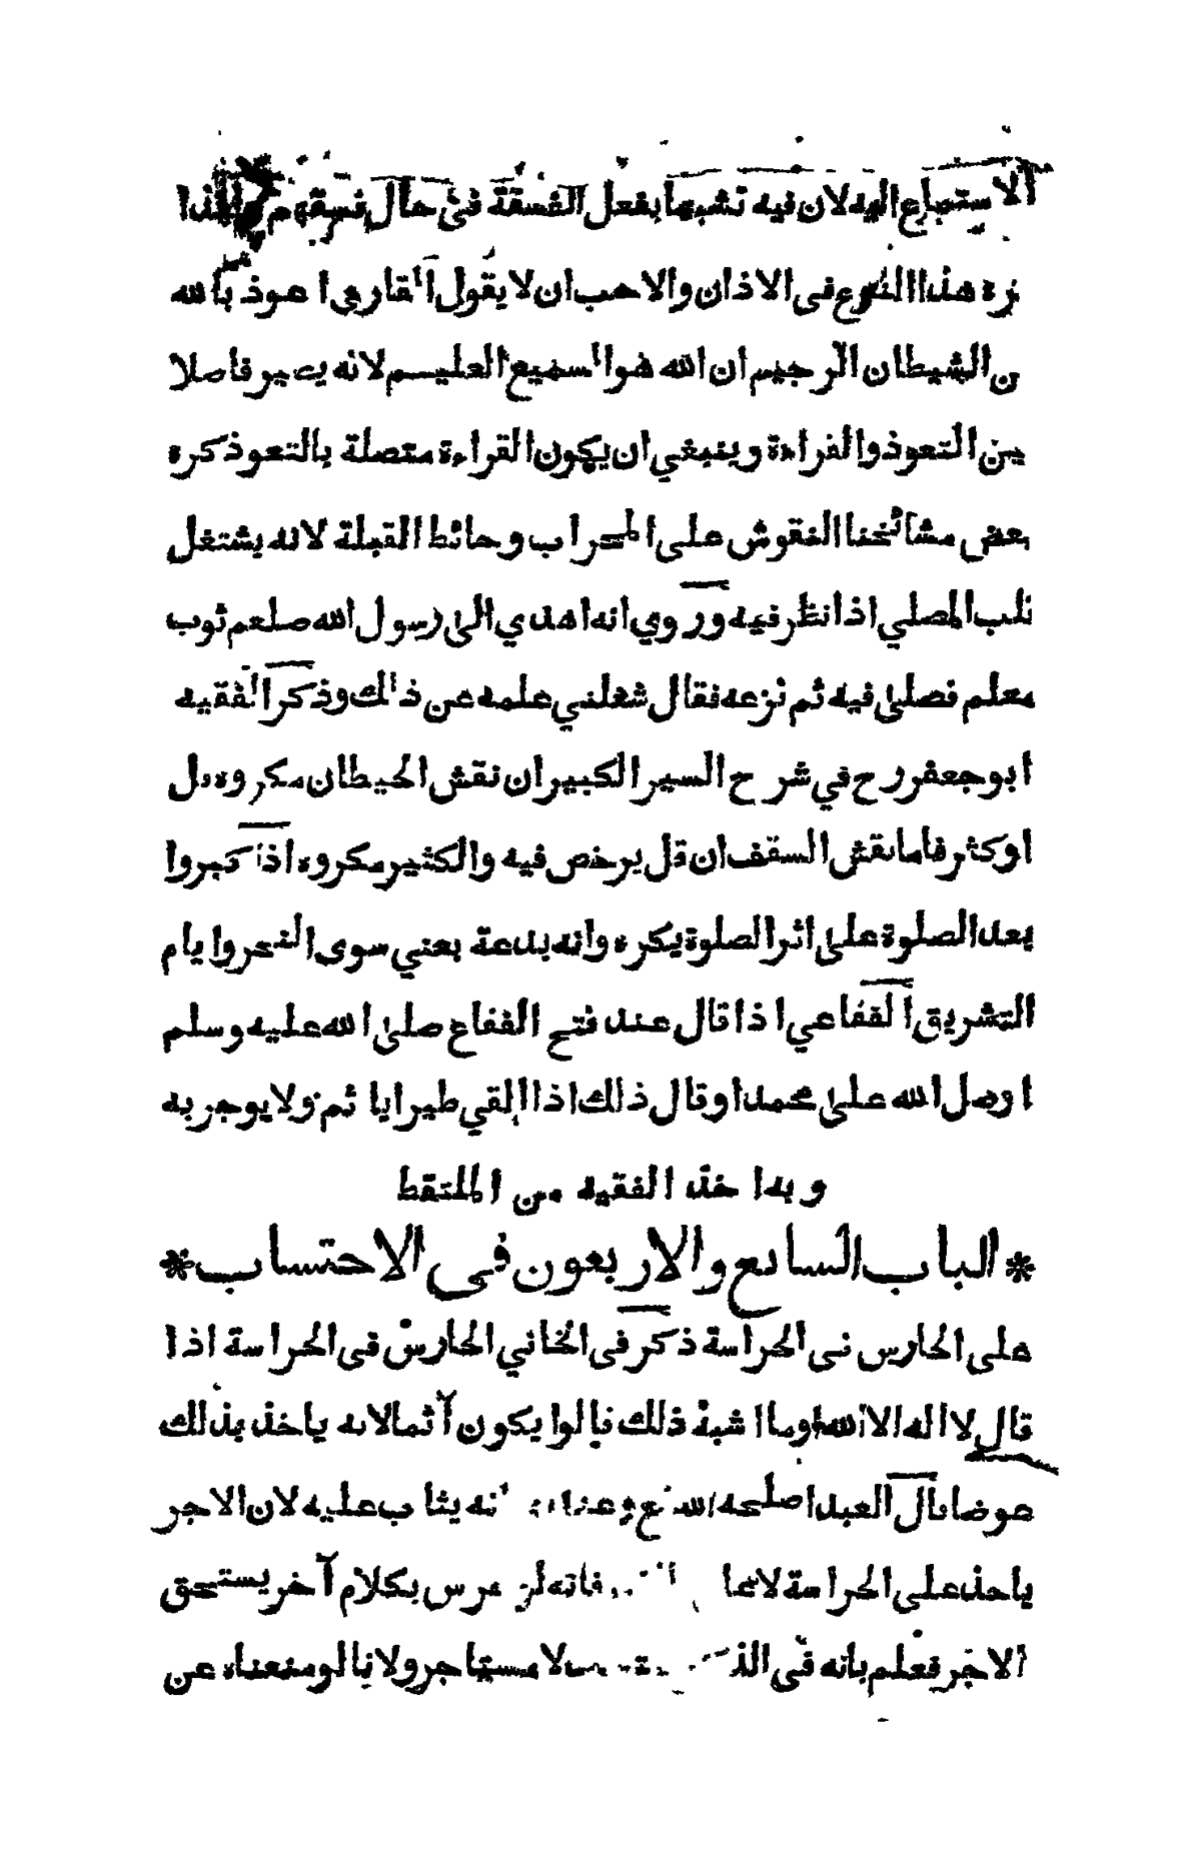 الاستماع اليه لان فيه تشبها بفعل الفسقة في حال فسقهم ولهذا
كره هذا النوع فى الاذان والاحب ان لا يقول القارى اعوذ بالله
من الشيطان الرجيم ان الله هو السميع العليم لانه يصير فاصلا
بين التعوذ والقراءة وينبغي ان يكون القراءة متصلة بالتعوذ كره
بعض مشائخنا النقوش على المحراب وحائط القبلة لانه يشتغل
قلب المصلي اذا نظر فيه وروي انه اهدي الى رسول الله صلعم ثوب
معلم فصلى فيه ثم نزعه فقال شغلني علمه عن ذالك وذكر الفقيه
ابو جعفر رح في شرح السير الكبير ان نقش الحيطان مكروه قل
او كثر فاما نقش السقف ان قل يرخص فيه والكثير مكروه اذا كبروا
بعد الصلوة على اثر الصلوة يكره وانه بدعة بعني سوى النحر وايام
التشريق القفاعي اذا قال عند فتح الفقاع صلى الله عليه وسلم
او صل الله على محمد او قال ذالك اذا القي طيرايا ثم ولا يوجر به
وبه اخذ الفقيه من الملتقط
* الباب السابع والاربعون فى الاحتساب *
على الحارس فى الحراسة ذكر فى الخاني الحارس فى الحراسة اذا
قال لا اله الا الله وما اشبه ذلك قالوا يكون آثما لانه ياخذ بذلك
عوضا قال العبد اصلحه الله انه يثاب عليه لان الاجر
ياخذ على الحراسة لا فانه لو حرس بكلام آخر يستحق
الاجر فعلم بانه فى لا مستاجر ولانا لو منعناه عن